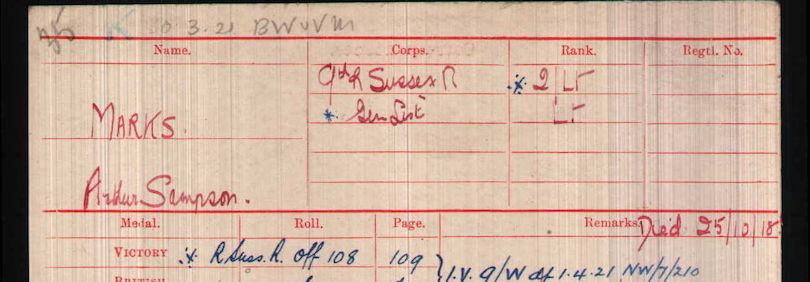 3.21 BWVVM
Name. Corps. Rank. Regtl. No.
9th R Sussex R * 2/Lt
MARKS. * Gen List Lt
Arthur Sampson.
Medal. Roll. Page. Remarks. Died 25/10/18
VICTORY * R Suss. R. Off 108 109
BRITISH I.V. 9/W df 1.4.21 NW/7/210